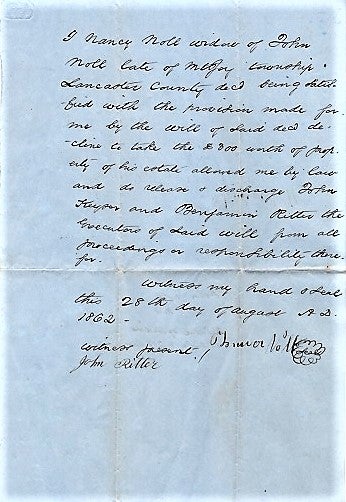 I Nancy Noll widow of John
Noll late of Mt Joy township
Lancaster County decd being satis-
fied with the provision made for
me by the will of said decd de-
cline to take the $300 worth of prop-
erty of his estate allowed me by law
and do release & discharge John
Keyser and Benjamin Ritter the
Executors of said will from all
proceedings or responsibility there
for.
Witness my hand & seal
this 28th day of August A.D.
1862
witness present
John Ritter
Seal